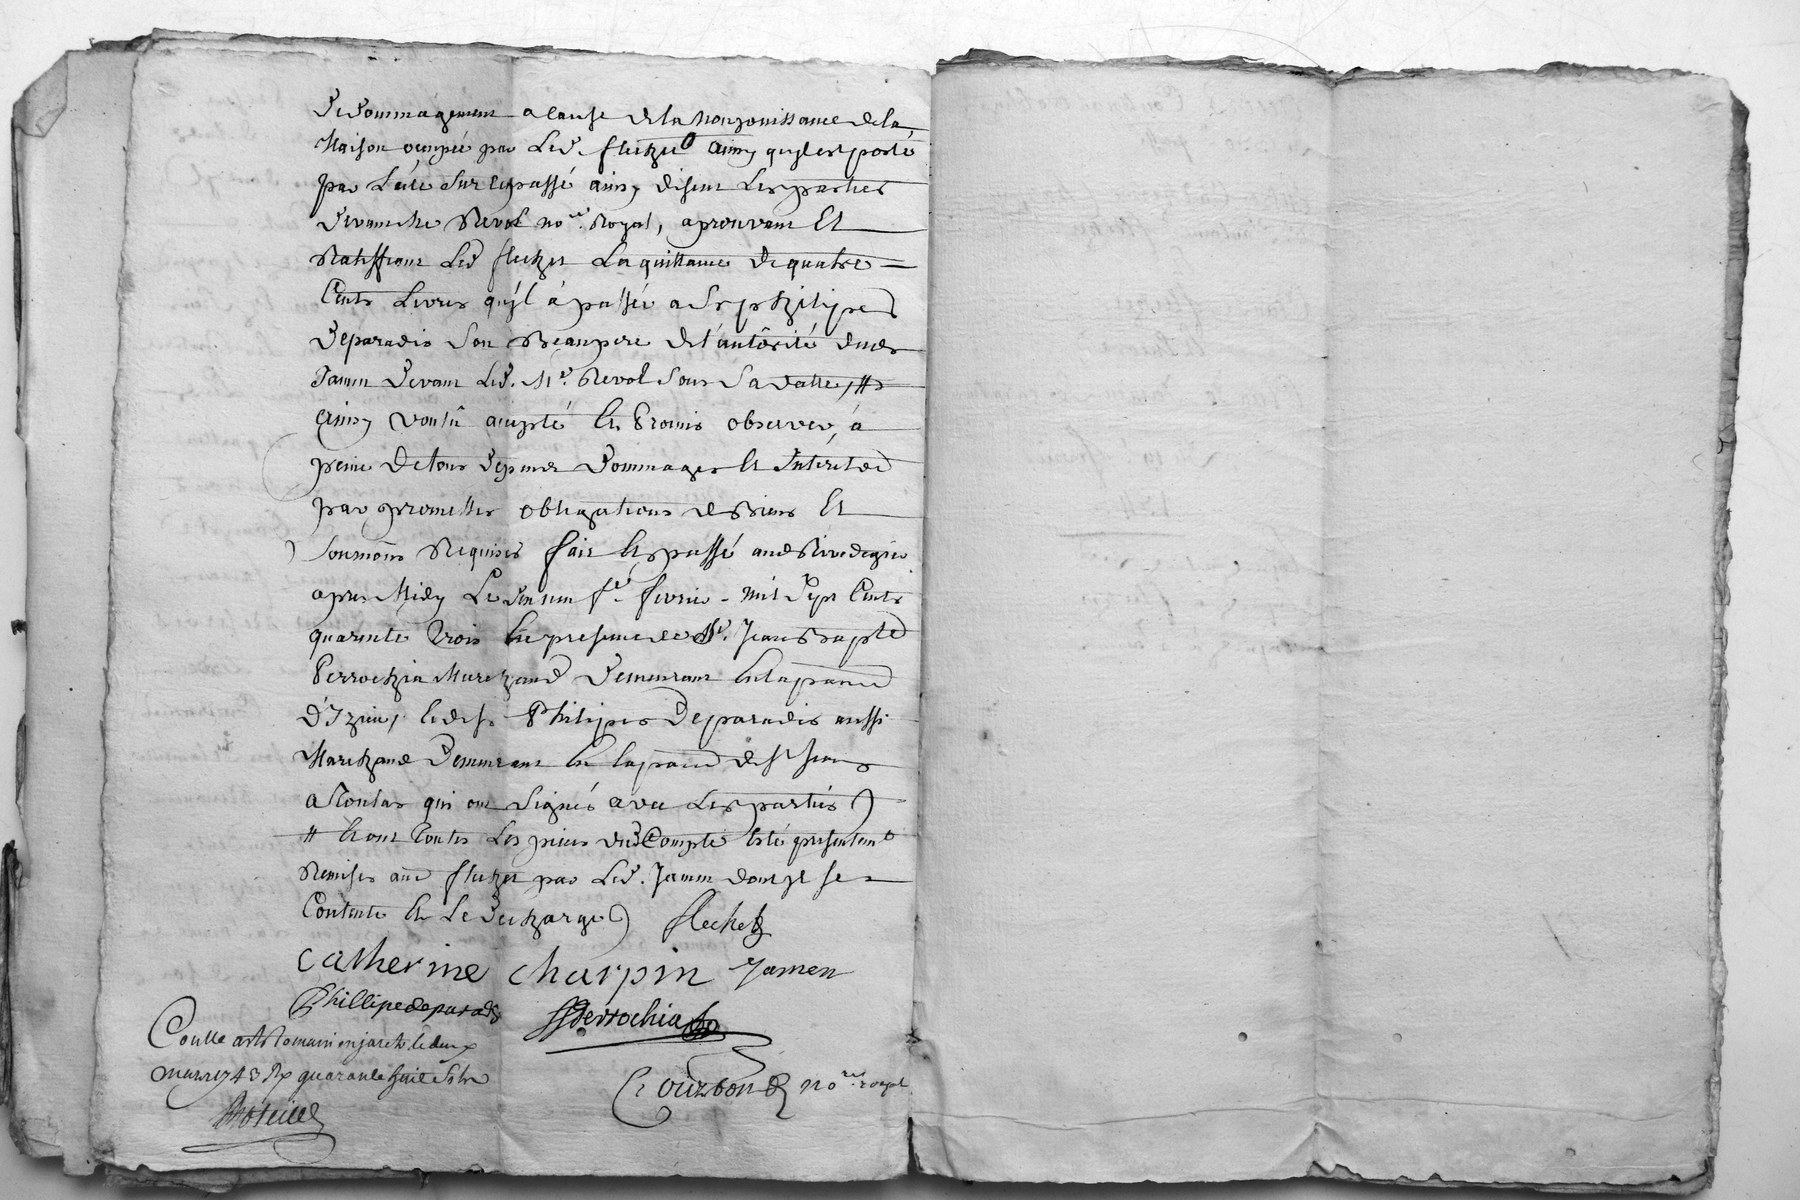 Dedommagement a cause de la non jouissance de la
Maison occupée par led. flechet ainsy quyl est porté
par l'acte sur ce passé ainsy disent les parties
devant Me Revol no.re Royal, aprouvant Et
Ratiffiant led flechet la quittance de quatre
Cents Livres qu'yl à passée a Sr philipes
deparadis son Beaupere de l'autôrité dud
Jamen devant led. Me. Revol sous sa datte, #
Ainsy voulu accepté Et Promis observer, à
peine de tous depends dommages Et Interets
par promesses obligations de Biens Et
soumôns Requises fait Et passé aud Rivedegier
apres Midy Le février mil Sept Cents
quarente trois En presence de Sr. Jean Bapte
Perrochia Marchand demeurant En la parroisse
d'Izieu, Et de Sr Philipes Deparadis aussi
Marchand demeurant En la parroisse de St Jean
a Toulas qui ont signés avec Les parties)
# Et ont toutes Les pieces dud Compte Esté presentemt
Remises aud flechet par Led. Jamen dont yl se
Contente Et Le décharge) flechet
Catherine charpin Jamen
Phillipe deparadis Perrochia
Conlle à st Romain en jarets le deux
mars 1743 Rx quarante huit sols
Bourbon no.re royal